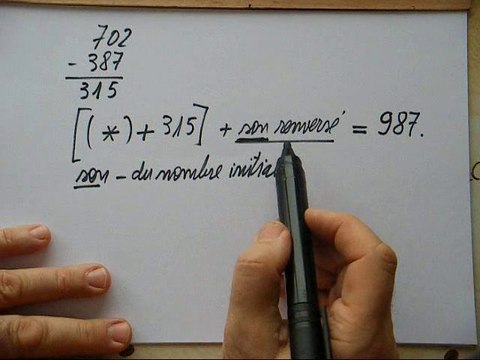 702
- 387
315
[(*) + 315] + son renversé = 987.
son - du nombre initia